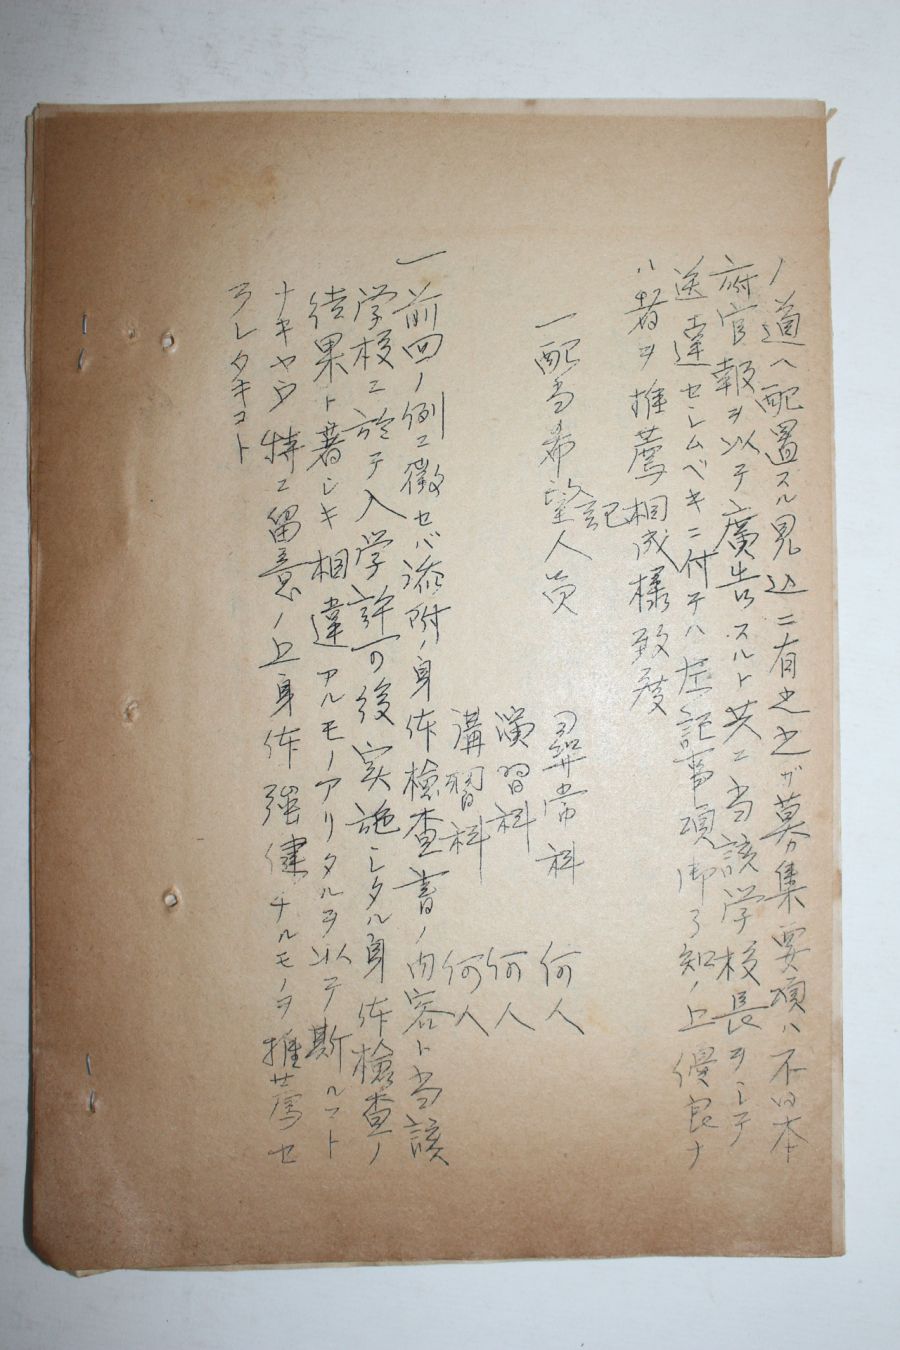 ノ道ヘ配置スル見込ニ有之之ガ募集要項ハ不日本
府官報ヲ以テ廣告スルト共ニ当該学校長ヲシテ
送達セシムベキニ付テハ左記事項御了知ノ上優良ナ
ル者ヲ推薦相成様致度
記
一配当希望人員
尋常科 何人
演習科 何人
講習科 何人
一前回ノ例ニ徴セバ添附ノ身体檢査書ノ内容ト当該
学校ニ於テ入学許可後実施シタル身体檢査ノ
結果ト著シキ相違アルモノアリタルヲ以テ斯ルコト
ナキヤウ特ニ留意ノ上身体強健ナルモノヲ推薦セ
ラレタキコト